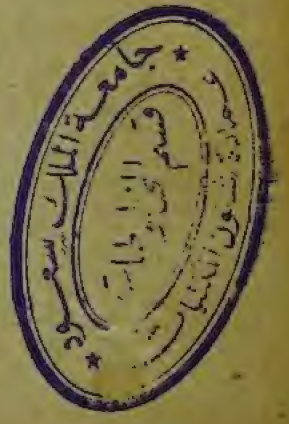 ★ جامعة الملك سعود ★
عمادة شئون المكتبات
قسم المخطوطات